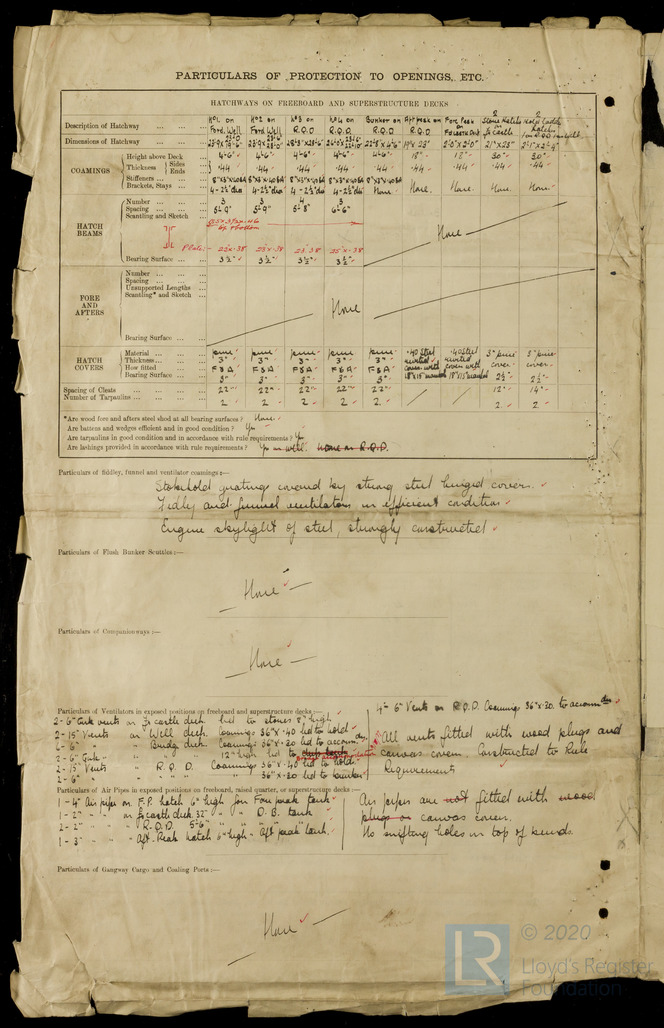 PARTICULARS OF PROTECTION TO OPENINGS, ETC.
HATCHWAYS ON FREEBOARD AND SUPERSTRUCTURE DECKS
Description of Hatchway No1 on Ford. Well No2 on Ford. Well No3 on R.Q.D No4 on R.Q.D. Bunker on R.Q.D Aft Peak on R.Q.D Fore Peak on Fo'castle Dk
Dimensions of Hatchway
COAMINGS
Height above Deck 4'-6" 4'-6" 4'-6" 4'-6" 4'-6" 18" 18" 30" 30"
Thickness Sides .44 .44 .44 .44 .44 .44 .44 .44 .44
Ends
Stiffeners
Brackets, Stays 4-2½"dia 4-2½"dia 4-2½"dia 4-2½"dia None. None. None. None. None.
HATCH BEAMS
Number 3 3 4 3
Spacing 5'-9" 5'-9" 5'-8" 6'-6"
Scantling and Sketch
Plate:- 22"x.38 23"x.38 23.38 25"x.38
None
Bearing Surface 3½" 3½" 3½" 3½"
FORE AND AFTERS
Number
Spacing
Unsupported Lengths
Scantling* and Sketch
None
Bearing Surface
HATCH COVERS
Material pine pine pine pine pine .40 Steel .40 Steel 3" pine 3" pine
Thickness 3" 3" 3" 3" 3" riveted riveted cover cover
How fitted F&A F&A F&A F&A F&A cover with cover with
Bearing Surface 3" 3" 3" 3" 3" 2½" 2½"
Spacing of Cleats 22" 22" 22" 22" 22" 12" 14"
Number of Tarpaulins 2 2 2 2 2. 2 2
*Are wood fore and afters steel shod at all bearing surfaces? None.
Are battens and wedges efficient and in good condition? Yes
Are tarpaulins in good condition and in accordance with rule requirements? Yes
Are lashings provided in accordance with rule requirements? Yes in well. None on R.Q.D.
Particulars of fiddley, funnel and ventilator coamings:—
Stokehold gratings covered by strong steel hinged covers.
Fidley and funnel ventilators in efficient condition
Engine skylight of steel, strongly constructed
Particulars of Flush Bunker Scuttles:—
None
Particulars of Companionways:—
None
Particulars of Ventilators in exposed positions on freeboard and superstructure decks:—
2- 6" Gk vents on Fo'castle deck led to stores 8" high
2- 15" Vents on Well deck Coamings 36"x.40 led to hold
6- 6" " " Bridge deck Coamings 36"x.20 led to accom dn.
2- 6" Gk " " " 12" high led to
2- 15" Vents " R.Q.D. Coamings 36"x.40 led to hold
2- 6" " " " " 36"x.20 led to bunker
4- 6" Vents on R.Q.D. Coamings 36"x.20. to accom dn
All vents fitted with wood plugs and
canvas covers Constructed to Rule
Requirements
Particulars of Air Pipes in exposed positions on freeboard, raised quarter, or superstructure decks:—
1 - 4" Air pipes on F.P. hatch 6" high for Fore peak tank
1 - 2" " " on Fo'castle deck 32" " " D.B. tank
2 - 2" " " R.Q.D. 5'-6" " " "
1 - 3" " " Aft. Peak hatch 6" high " Aft peak tank.
Air pipes are not fitted with wood
plugs or canvas covers.
No snifting holes in top of bends.
Particulars of Gangway Cargo and Coaling Ports:—
None
LR © 2020
Lloyd's Register
Foundation